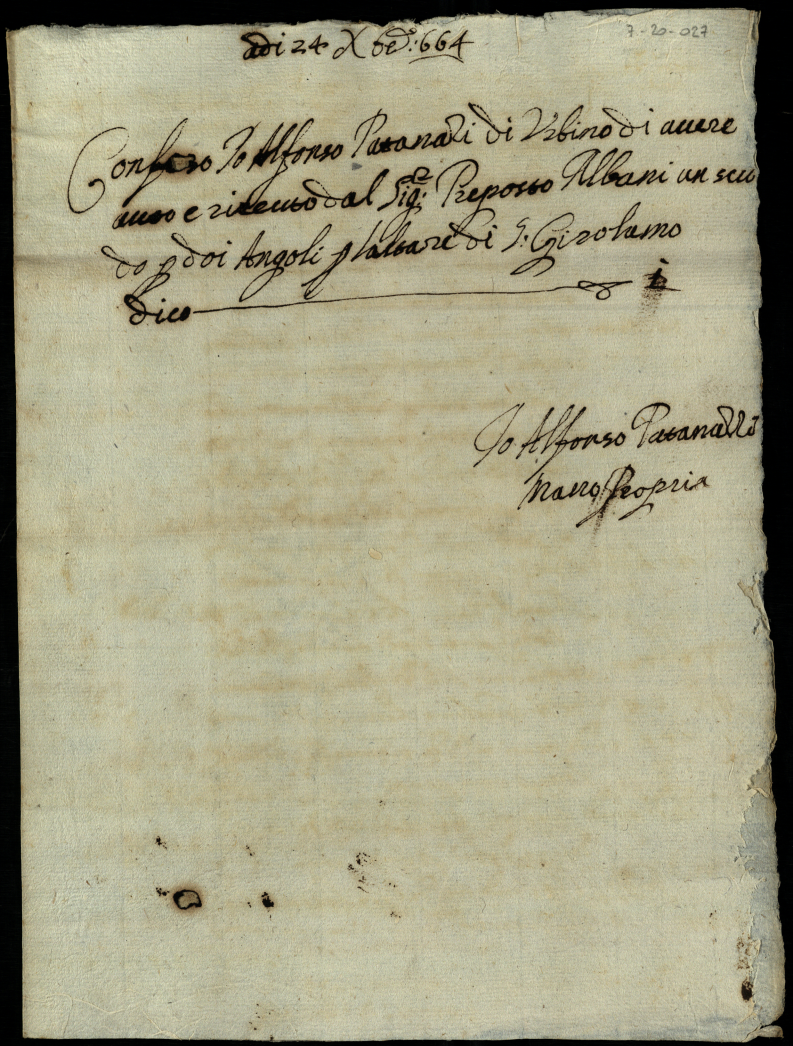 7-20-027
adi 24 Xbre: 664
Confesso Io Alfonso Patanazi di Urbino di avere
auto e riceuto dal Sigre Preposto Albani un scu
do p doi Angoli p laltare di S: Girolamo
dico 1
Io Alfonso Patanazzi
Mano Propria